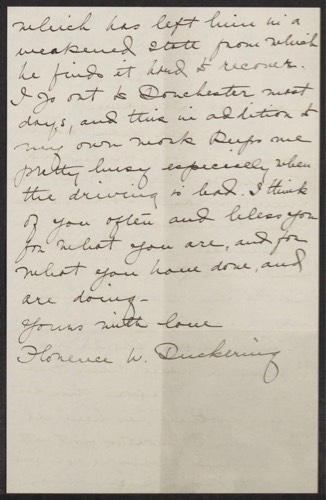 which has left him in a
weakened state from which
he finds it hard to recover.
I go out to Dorchester most
days, and this in addition to
my own work keeps me
pretty busy especially when
the driving is bad. I think
of you often and bless you
for what you are, and for
what you have done, and
are doing-
Yours with love
Florence W. Duckering